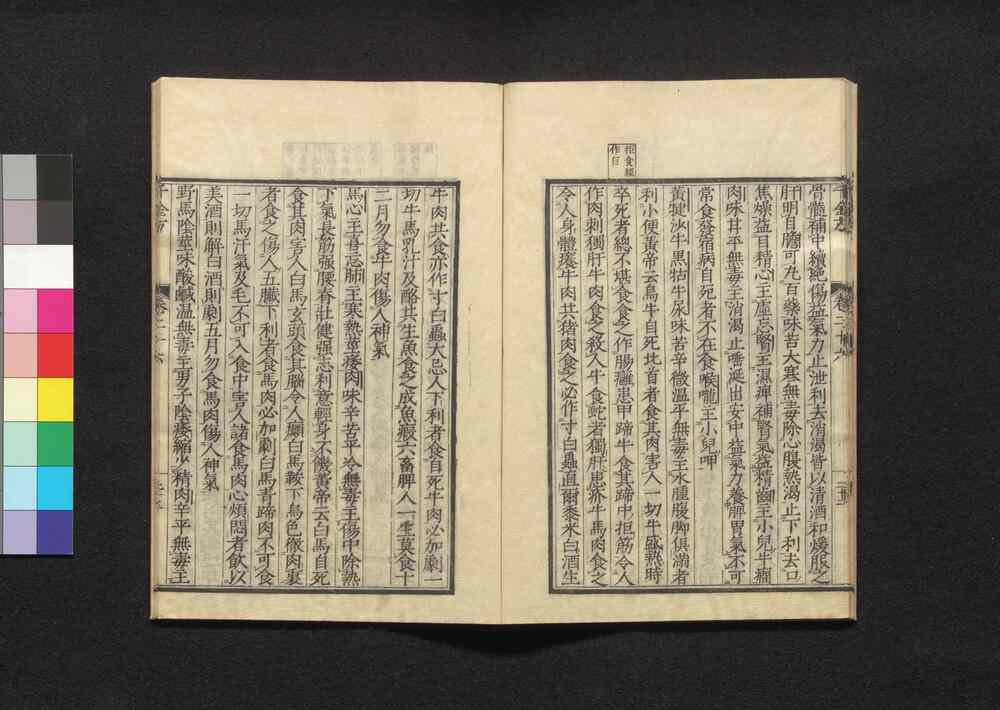 骨髓補中續絕傷益氣力止泄利去消渴皆以清酒和煖服之
肝明目膽可丸百藥味苦大寒無毒除心腹熱渴止下利去口
焦燥益目精心主虛忘腎主濕痹補腎氣益精齒主小兒牛癇
肉味甘平無毒主消渴止唾涎出安中益氣力養脾胃氣不可
常食發宿病自死者不任食喉嚨主小兒呷
黃犍沙牛黑牯牛尿味苦辛微溫平無毒主水腫腹脚俱滿者
利小便黃帝云烏牛自死北首者食其肉害人一切牛盛熱時
卒死者總不堪食食之作腸癰患甲蹄牛食其蹄中拒筋令人
作肉刺獨肝牛肉食之殺人牛食蛇者獨肝患疥牛馬肉食之
令人身體癢牛肉共猪肉食之必作寸白蟲直爾黍米白酒生
拒食經
作目
牛肉共食亦作寸白蟲大忌人下利者食自死牛肉必加劇一
切牛馬乳汁及酪共生魚食之成魚瘕六畜脾人一生莫食十
二月勿食牛肉傷人神氣
馬心主喜忘肺主寒熱莖痿肉味辛苦平冷無毒主傷中除熱
下氣長筋强腰脊壯健强志利意輕身不饑黃帝云白馬自死
食其肉害人白馬玄頭食其腦令人癲白馬鞍下烏色徹肉裏
者食之傷人五臟下利者食馬肉必加劇白馬青蹄肉不可食
一切馬汗氣及毛不可入食中害人諸食馬肉心煩悶者飲以
美酒則解白酒則劇五月勿食馬肉傷人神氣
野馬陰莖味酸鹹溫無毒主男子陰痿縮少精肉辛平無毒主